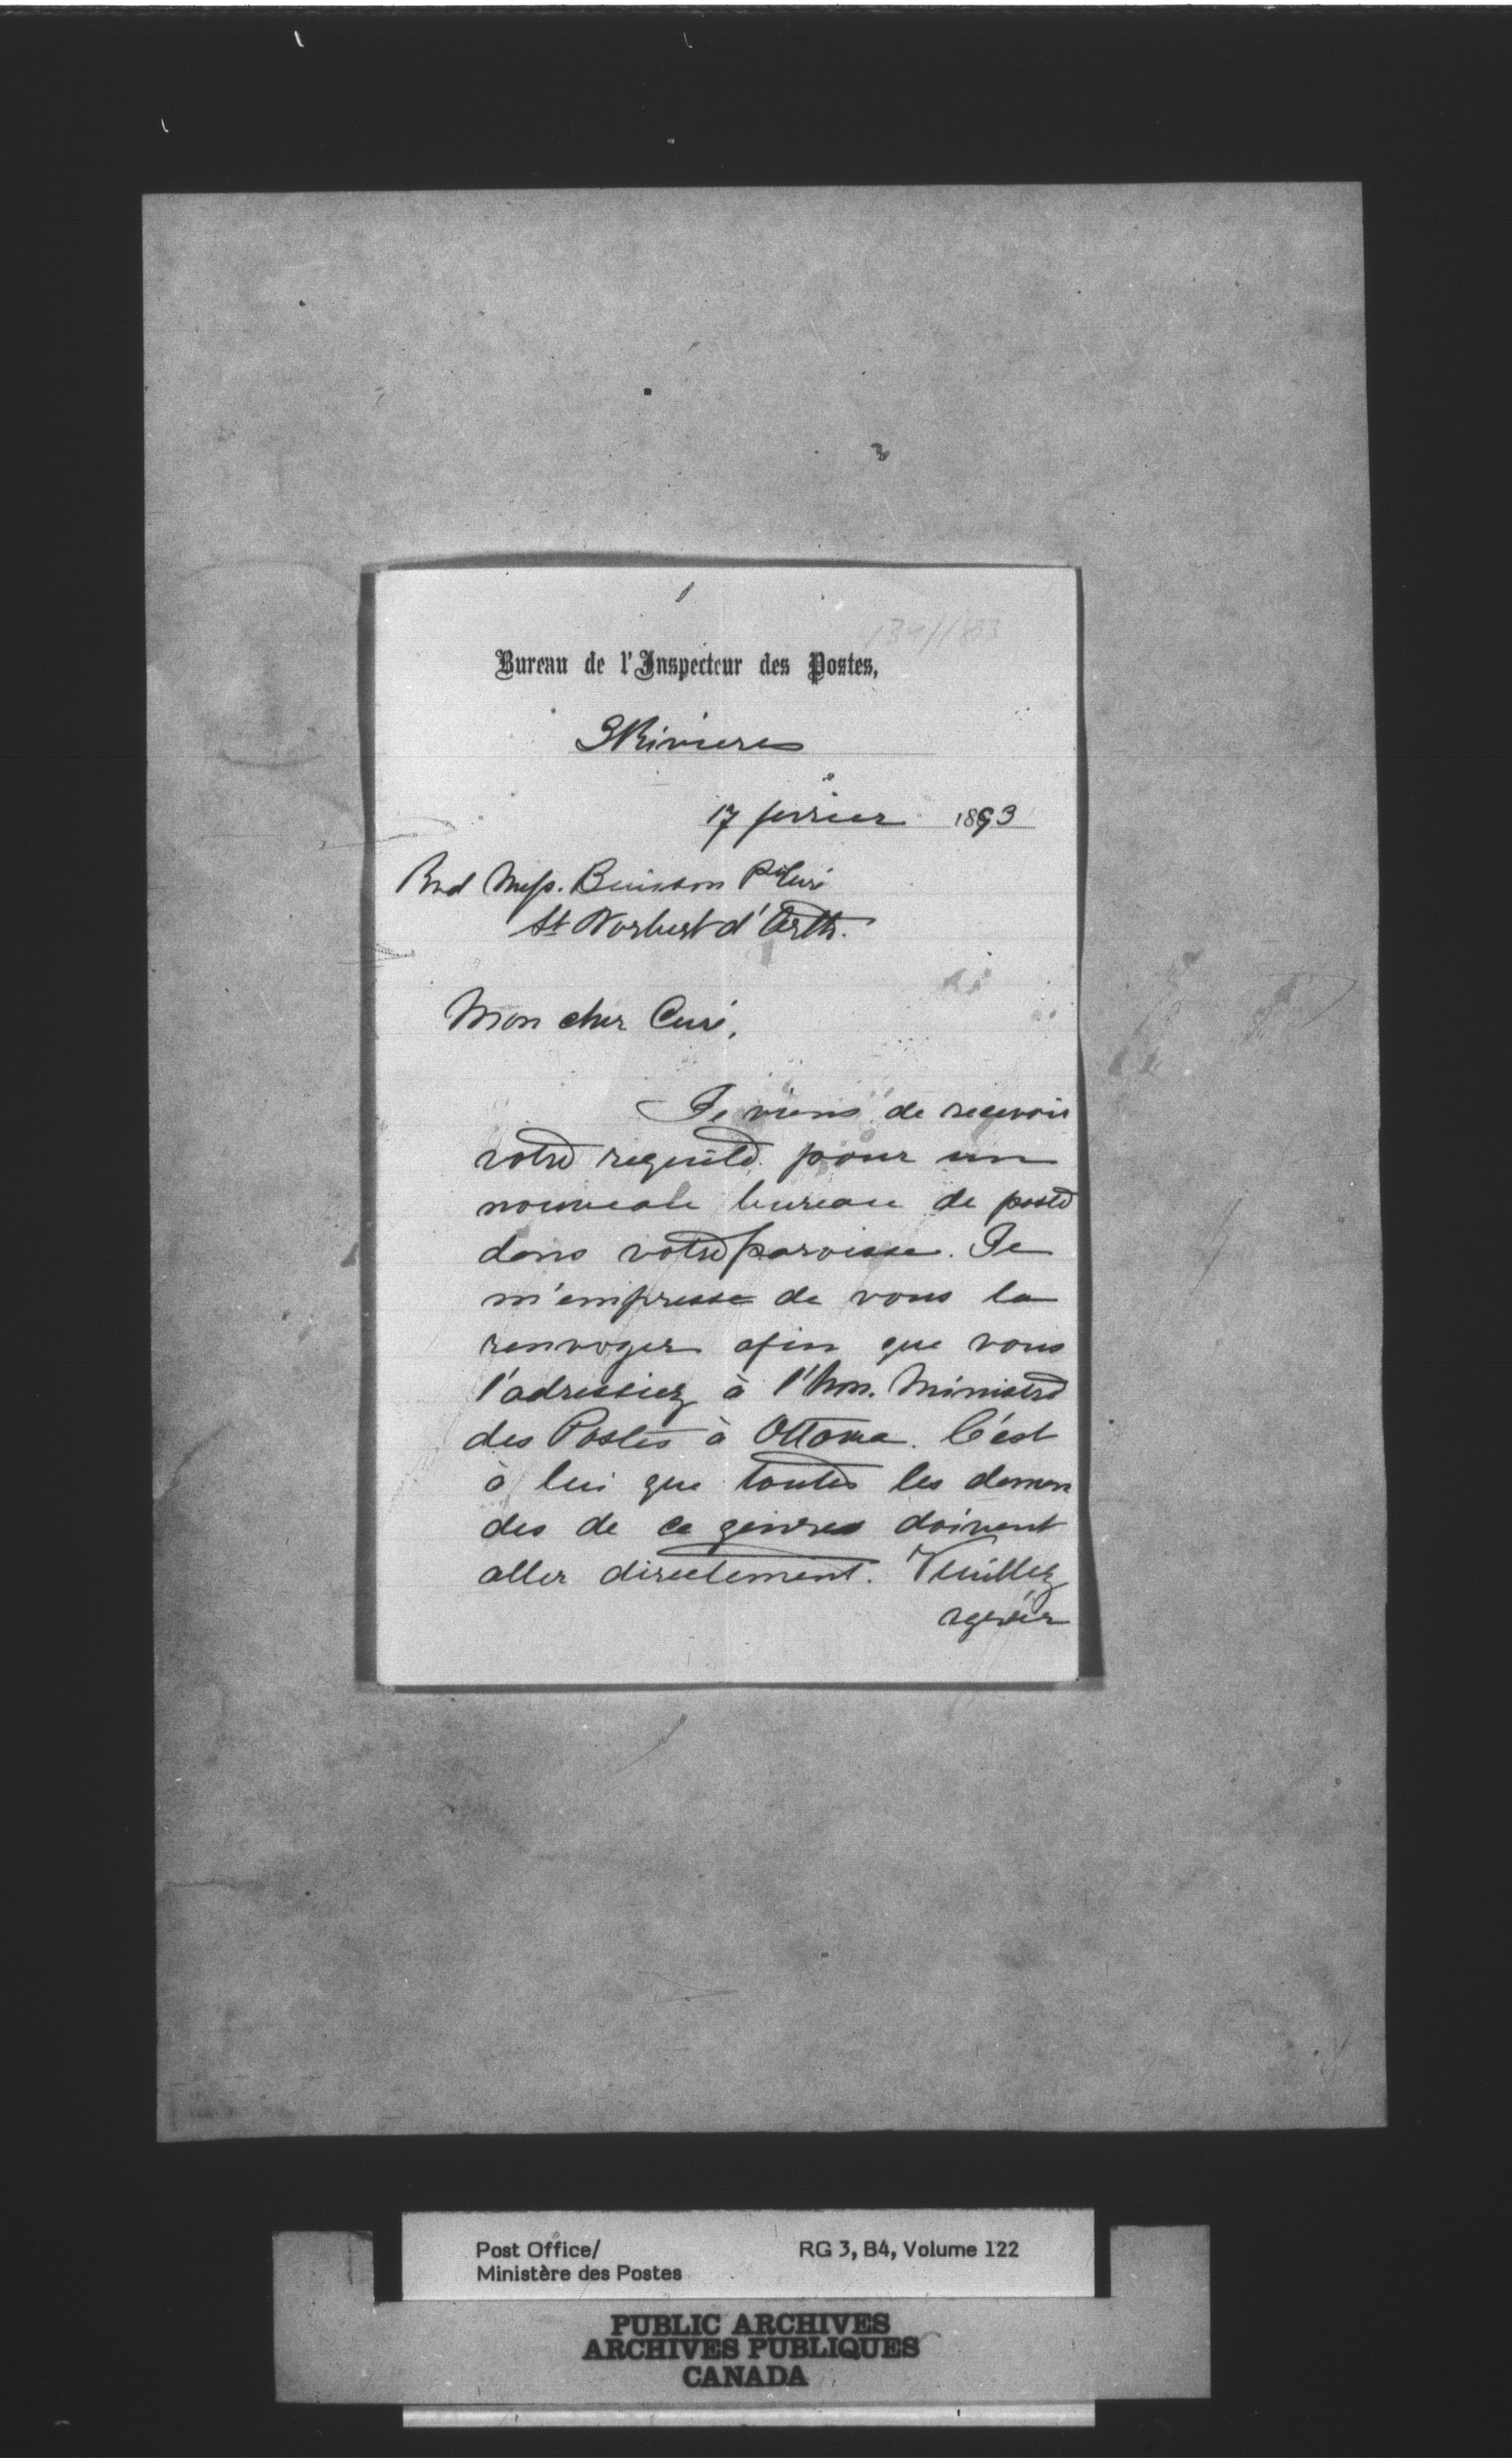 Bureau de l'Inspecteur des Postes,
3Rivieres
17 fevrier 1893
Rvd Mess. Buisson Ptre Curé
St Norbert d'Arth.
Mon cher Curé,
Je viens de recevoir
votre requête pour un
nouveau bureau de poste
dans votre paroisse. Je
m'empresse de vous la
renvoyer afin que vous
l'adressiez à l'hon. Ministre
des Postes à Ottawa. C'est
à lui que toutes les deman
des de ce genres doivent
aller directement. Veuillez
Post Office/
Ministère des Postes
RG 3, B4, Volume 122
PUBLIC ARCHIVES
ARCHIVES PUBLIQUES
CANADA